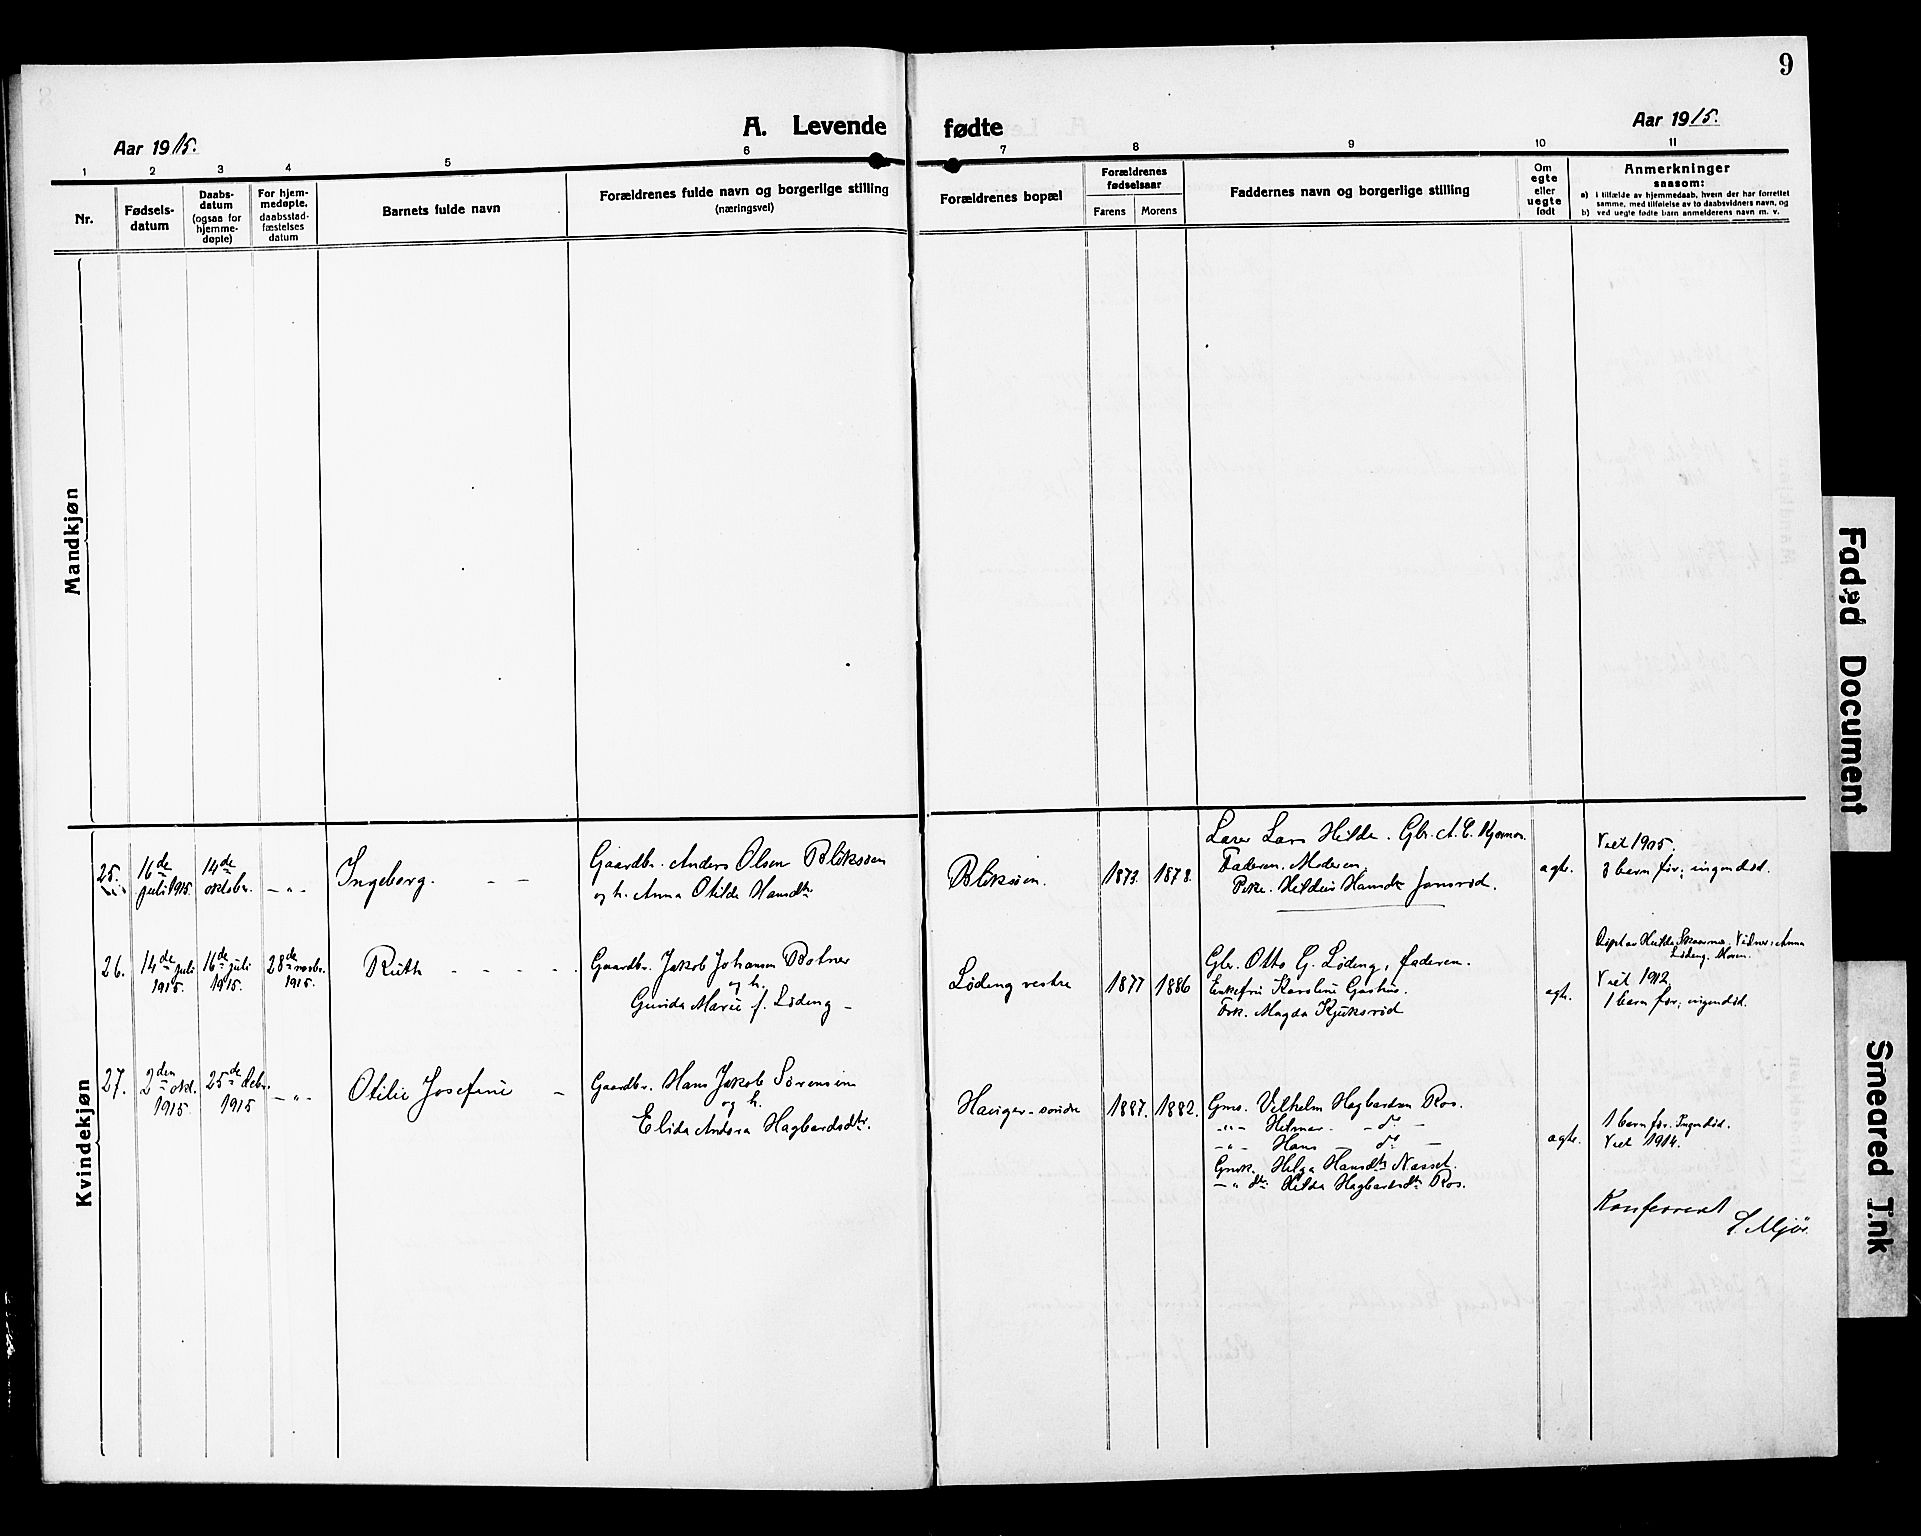 9
A. Levende fødte
Aar 1915.
Aar 1915.
1 2 3 4 5 6 7 8 9 10 11
Nr.
Fødsels-
datum
Daabs-
datum
(ogsaa for
hjemme-
døpte)
For hjem-
medøpte.
daabsstad-
fæstelses
datum
Barnets fulde navn
Forældrenes fulde navn og borgerlige stilling
(næringsvei)
Forældrenes bopæl
Forældrenes
fødselsaar
Farens
Morens
Faddernes navn og borgerlige stilling
Om
egte
eller
uegte
født
Anmerkninger
saasom:
a) i tilfælde av hjemmedaab, hvem der har forrettet
samme, med tilføielse av to daabsvidners navn, og
b) ved uegte fødte barn anmelderens navn m. v.
Mandkjøn
Kvindekjøn
25.
16de
juli 1915.
14de
oktobr.
- " -
Ingeborg. - -
Gaardbr. Anders Olsen Bliksøen
og h. Anna Otilde Hansdtr
Bliksøen.
1873.
1878.
Lærer Lars Hilde. Gbr. A. C.
Faderen. Moderen,
Pike. Hansdtr
egte.
Viet 1905.
3 barn før; ingen død.
26.
14de juli
1915.
16de juli
1915.
28de novbr.
1915.
Ruth - - - -
Gaardbr. Jakob Johansen Botner
og h.
Gunda Marie f. Løding -
Løding vestre
1877
1886
Gbr. Otto G. Løding, faderen.
Enkefru Karoline
Frk. Magda Kjuksrød
egte.
Døpt av
Løding, Moren.
Viet 1912
1 barn før; ingen død.
27.
2den okt.
1915.
25de debr.
1915
- " -
Otilie Josefine -
Gaardbr. Hans Jakob Sørensen
og h.
Elida Andora Hagbardsdtr.
Hauger-søndre
1887.
1882.
Gms. Vilhelm Hagbardsen Ros.
- " - Hilmar - do -
- " - Hans - do -
Gmk. Helga Hansdtr Næsset.
- " do: Hilda Hagbardsdtr Ros.
egte.
1 barn før. Ingen død.
Viet 1914.
Konfereret
S. Mjør.
Faded Document
Smeared Ink